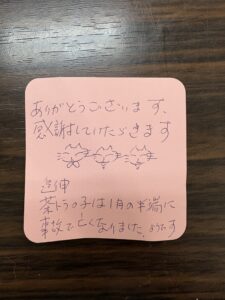 ありがとうございます、
感謝していただきます
追伸
茶トラの子は1月の半端に
事故で亡くなりました。